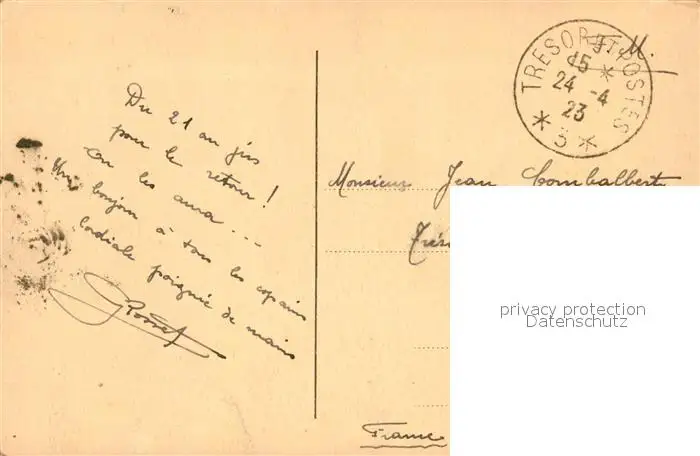 Du 21 au jus
pour le retour !
On les aura ...
Un bonjour à tous les copains
Cordiale poignée de mains
TRESOR ET POSTES
15 *
24 -4
23
* 3 *
F. M.
Monsieur Jean Combalbert
Trés
France
privacy protection
Datenschutz